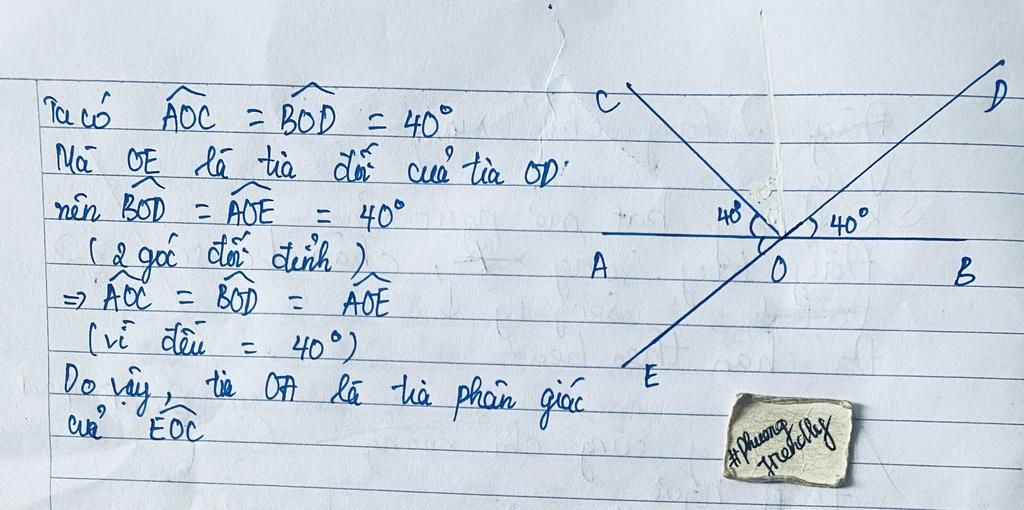 Ta có AOC = BOD = 40°
Mà OE là tia đối của tia OD
nên BOD = AOE = 40°
(2 góc đối đỉnh)
=> AOC = BOD = AOE
(vì đều = 40°)
Do vậy, tia OA là tia phân giác
của EOC
C
D
40°
40°
A
O
B
E
#Phuong
friendly